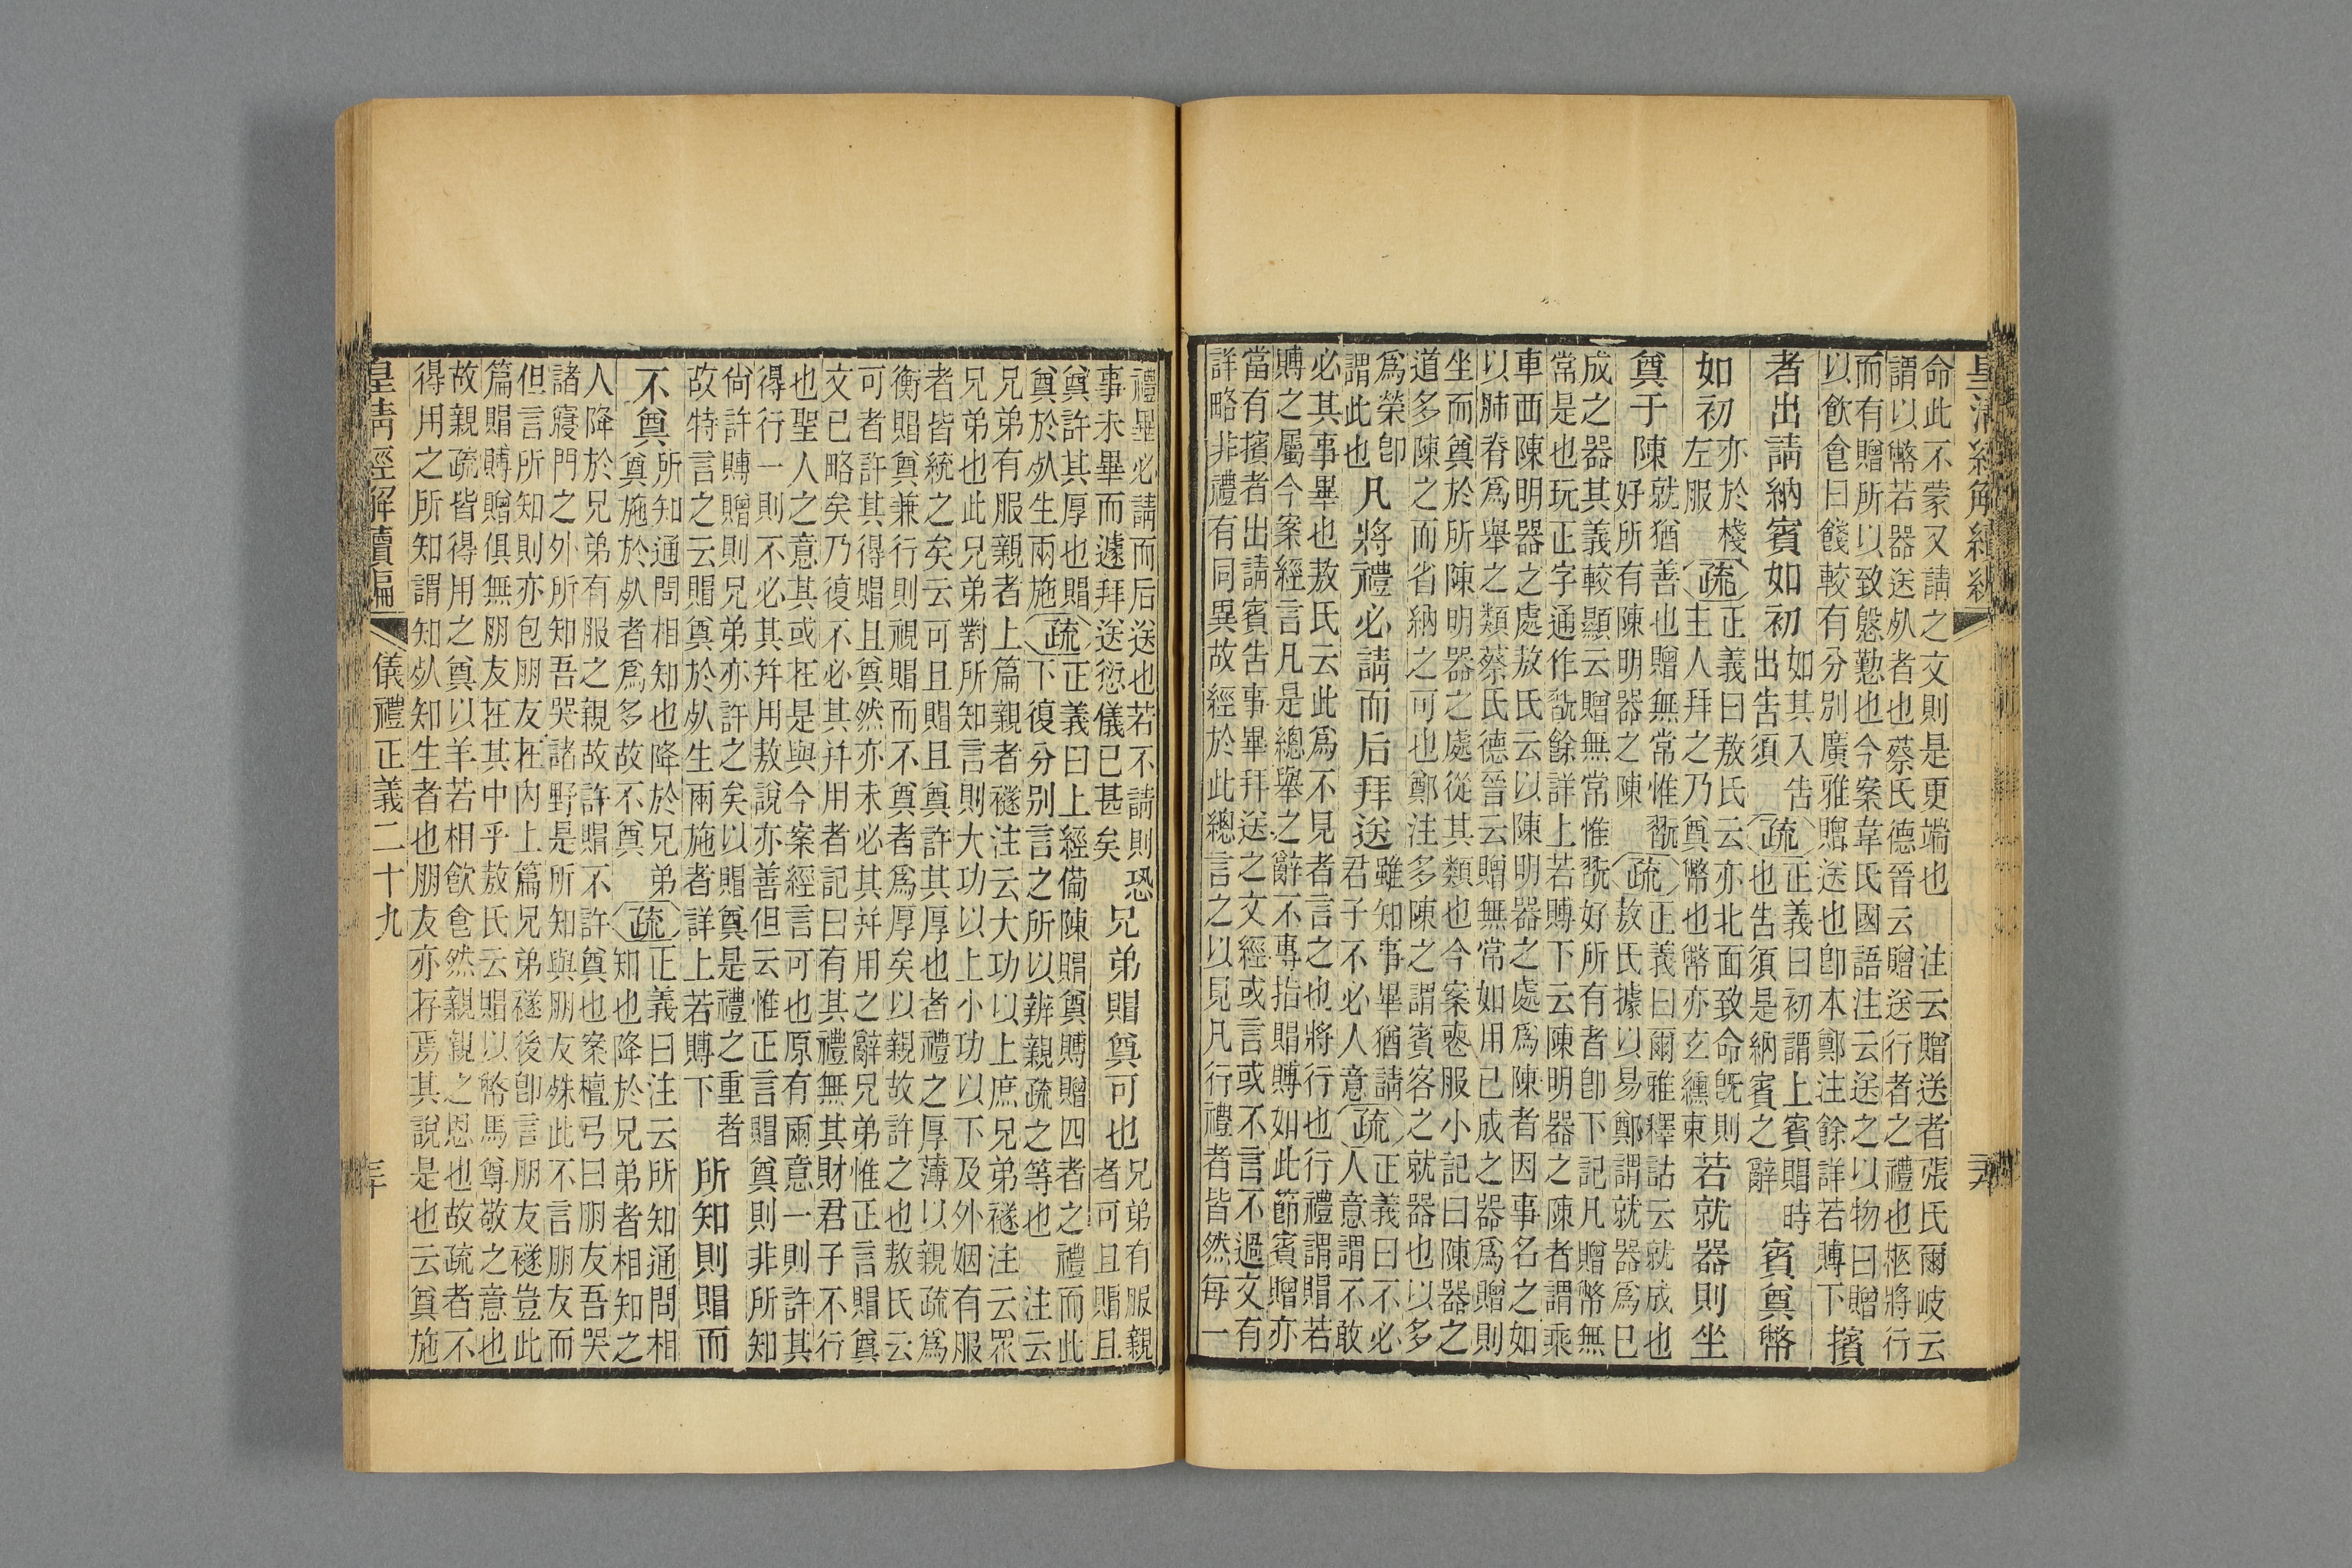 皇清經解續編
命此不蒙又請之文則是更端也　注云贈送者張氏爾岐云
謂以幣若器送死者也蔡氏德晉云贈送行者之禮也柩將行
而有贈所以致慇懃也今案韋氏國語注云送之以物曰贈
以飲食曰餞較有分別廣雅贈送也卽本鄭注餘詳若賻下
擯
者出請納賓如初
如其入告
出告須
疏
正義曰初謂上賓賵時
也告須是納賓之辭
賓奠幣
如初
亦於棧
左服
疏
正義曰敖氏云亦北面致命旣則
主人拜之乃奠幣也幣亦玄纁束
若就器則坐
奠于陳
就猶善也贈無常惟翫
好所有陳明器之陳
疏
正義曰爾雅釋詁云就成也
敖氏據以易鄭謂就器爲已
成之器其義較顯云贈無常惟翫好所有者卽下記凡贈幣無
常是也玩正字通作翫餘詳上若賻下云陳明器之陳者謂乘
車西陳明器之處敖氏云以陳明器之處爲陳者因事名之如
以肺脊爲舉之類蔡氏德晉云贈無常如用已成之器爲贈則
坐而奠於所陳明器之處從其類也今案喪服小記曰陳器之
道多陳之而省納之可也鄭注多陳之謂賓客之就器也以多
爲榮卽
謂此也
凡將禮必請而后拜送
雖知事畢猶請
君子不必人意
疏
正義曰不必
人意謂不敢
必其事畢也敖氏云此爲不見者言之也將行也行禮謂賵若
賻之屬今案經言凡是總舉之辭不專指賵賻如此節賓贈亦
當有擯者出請賓告事畢拜送之文經或言或不言不過文有
詳略非禮有同異故經於此總言之以見凡行禮者皆然每一
禮畢必請而后送也若不請則恐
事未畢而遽拜送愆儀已甚矣
兄弟賵奠可也
兄弟有服親
者可且賵且
奠許其厚也賵
奠於死生兩施
疏
正義曰上經僃陳賵奠賻贈四者之禮而此
下復分別言之所以辨親疏之等也　注云
兄弟有服親者上篇親者襚注云大功以上庶兄弟襚注云眾
兄弟也此兄弟對所知言則大功以上小功以下及外姻有服
者皆統之矣云可且賵且奠許其厚也者禮之厚薄以親疏爲
衡賵奠兼行則視賵而不奠者爲厚矣以親故許之也敖氏云
可者許其得賵且奠然亦未必其幷用之辭兄弟惟正言賵奠
文已略矣乃復不必其幷用者記曰有其禮無其財君子不行
也聖人之意其或在是與今案經言可也原有兩意一則許其
得行一則不必其幷用敖說亦善但云惟正言賵奠則非所知
尙許賻贈則兄弟亦許之矣以賵奠是禮之重者
故特言之云賵奠於死生兩施者詳上若賻下
所知則賵而
不奠
所知通問相知也降於兄弟
奠施於死者爲多故不奠
疏
正義曰注云所知通問相
知也降於兄弟者相知之
人降於兄弟有服之親故許賵不許奠也案檀弓曰朋友吾哭
諸寢門之外所知吾哭諸野是所知與朋友殊此不言朋友而
但言所知則亦包朋友在內上篇兄弟襚後卽言朋友襚豈此
篇賵賻贈俱無朋友在其中乎敖氏云賵以幣馬尊敬之意也
故親疏皆得用之奠以羊若相飲食然親親之恩也故疏者不
得用之所知謂知死知生者也朋友亦存焉其說是也云奠施
皇清經解續編
儀禮正義二十九
三十